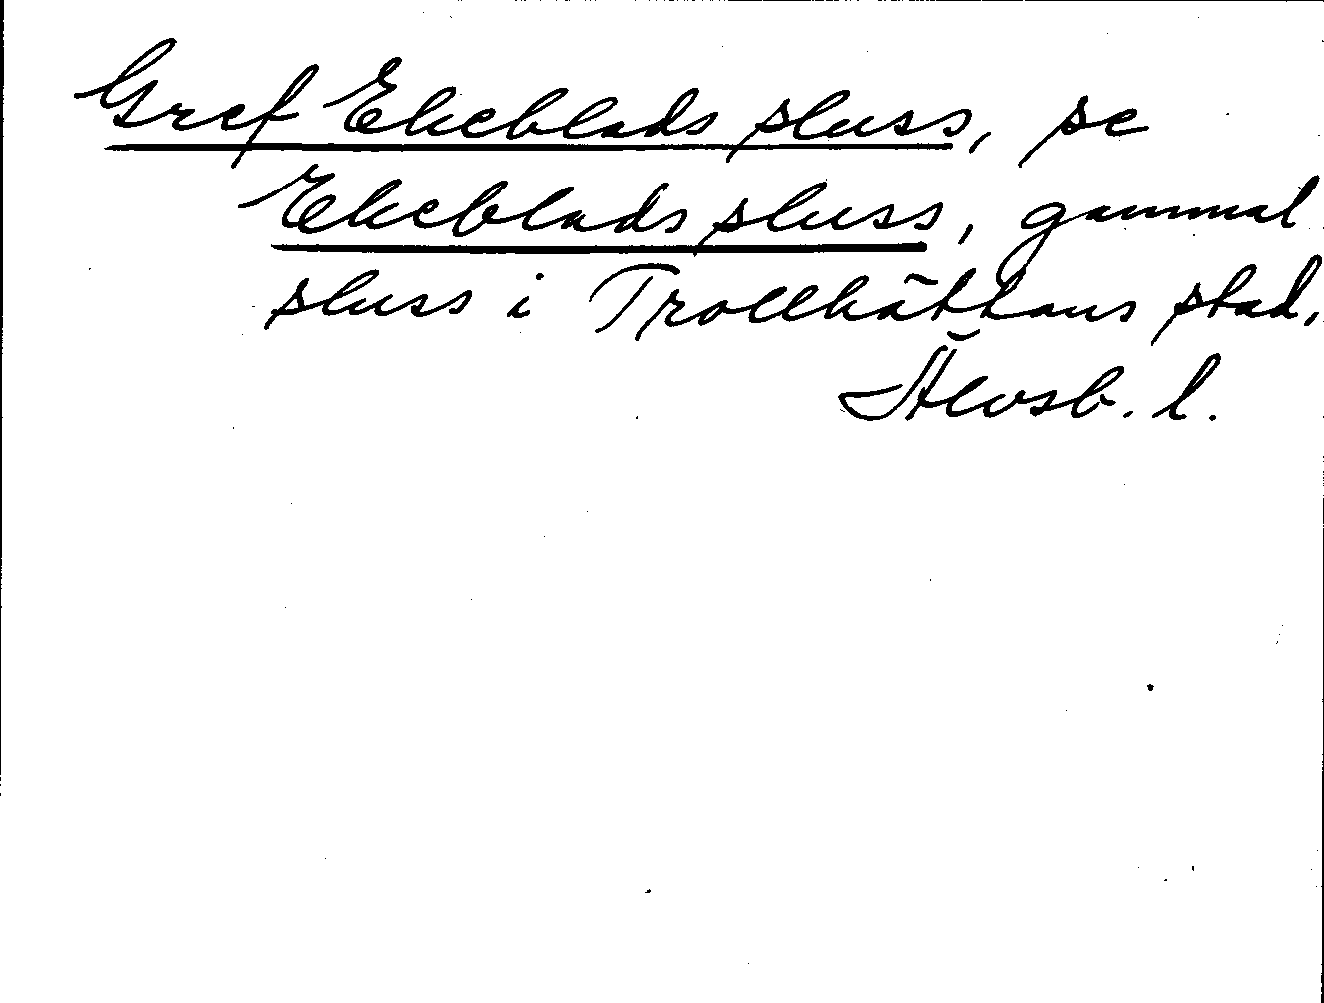 Gref Ekeblads sluss, se
Ekeblads sluss, gammal
sluss i Trollhättans stad,
Älvsb. l.